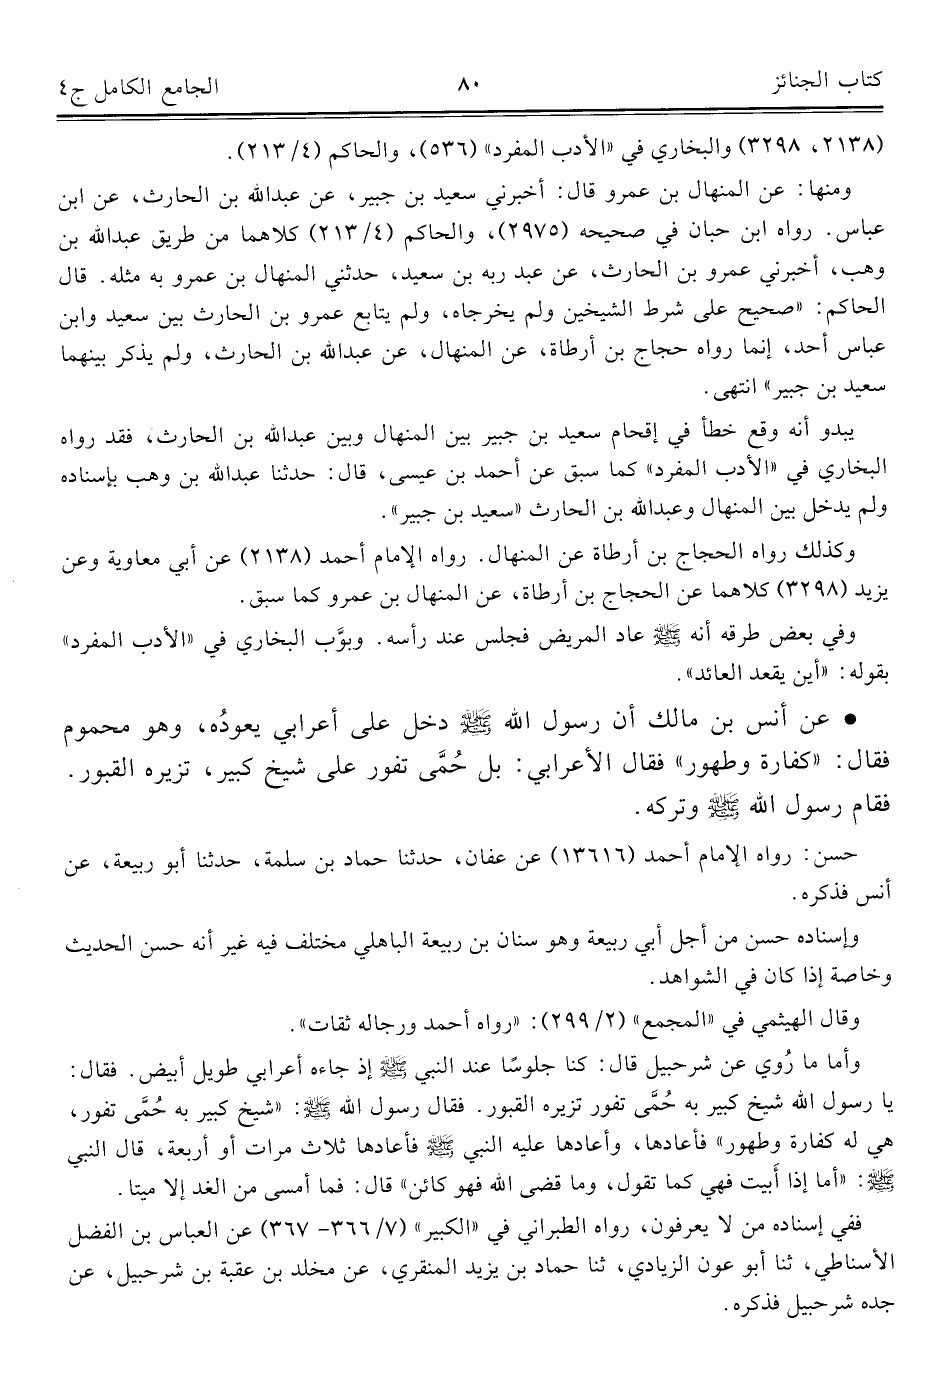 كتاب الجنائز ٨٠ الجامع الكامل ج٤
(٢١٣٨، ٣٢٩٨) والبخاري في «الأدب المفرد» (٥٣٦)، والحاكم (٤/ ٢١٣).
ومنها: عن المنهال بن عمرو قال: أخبرني سعيد بن جبير، عن عبدالله بن الحارث، عن ابن
عباس. رواه ابن حبان في صحيحه (٢٩٧٥)، والحاكم (٤/ ٢١٣) كلاهما من طريق عبدالله بن
وهب، أخبرني عمرو بن الحارث، عن عبد ربه بن سعيد، حدثني المنهال بن عمرو به مثله. قال
الحاكم: «صحيح على شرط الشيخين ولم يخرجاه، ولم يتابع عمرو بن الحارث بين سعيد وابن
عباس أحد، إنما رواه حجاج بن أرطاة، عن المنهال، عن عبدالله بن الحارث، ولم يذكر بينهما
سعيد بن جبير» انتهى.
يبدو أنه وقع خطأ في إقحام سعيد بن جبير بين المنهال وبين عبدالله بن الحارث، فقد رواه
البخاري في «الأدب المفرد» كما سبق عن أحمد بن عيسى، قال: حدثنا عبدالله بن وهب بإسناده
ولم يدخل بين المنهال وعبدالله بن الحارث «سعيد بن جبير».
وكذلك رواه الحجاج بن أرطاة عن المنهال. رواه الإمام أحمد (٢١٣٨) عن أبي معاوية وعن
يزيد (٣٢٩٨) كلاهما عن الحجاج بن أرطاة، عن المنهال بن عمرو كما سبق.
وفي بعض طرقه أنه ﷺ عاد المريض فجلس عند رأسه. وبوَّب البخاري في «الأدب المفرد»
بقوله: «أين يقعد العائد».
• عن أنس بن مالك أن رسول الله ﷺ دخل على أعرابي يعودُه، وهو محموم
فقال: «كفارة وطهور» فقال الأعرابي: بل حُمَّى تفور على شيخ كبير، تزيره القبور.
فقام رسول الله ﷺ وتركه.
حسن: رواه الإمام أحمد (١٣٦١٦) عن عفان، حدثنا حماد بن سلمة، حدثنا أبو ربيعة، عن
أنس فذكره.
وإسناده حسن من أجل أبي ربيعة وهو سنان بن ربيعة الباهلي مختلف فيه غير أنه حسن الحديث
وخاصة إذا كان في الشواهد.
وقال الهيثمي في «المجمع» (٢/ ٢٩٩): «رواه أحمد ورجاله ثقات».
وأما ما رُوي عن شرحبيل قال: كنا جلوسًا عند النبي ﷺ إذ جاءه أعرابي طويل أبيض. فقال:
يا رسول الله شيخ كبير به حُمَّى تفور تزيره القبور. فقال رسول الله ﷺ: «شيخ كبير به حُمَّى تفور،
هي له كفارة وطهور» فأعادها، وأعادها عليه النبي ﷺ فأعادها ثلاث مرات أو أربعة، قال النبي
ﷺ: «أما إذا أَبيت فهي كما تقول، وما قضى الله فهو كائن» قال: فما أمسى من الغد إلا ميتا.
ففي إسناده من لا يعرفون، رواه الطبراني في «الكبير» (٧/ ٣٦٦- ٣٦٧) عن العباس بن الفضل
الأسناطي، ثنا أبو عون الزيادي، ثنا حماد بن يزيد المنقري، عن مخلد بن عقبة بن شرحبيل، عن
جده شرحبيل فذكره.